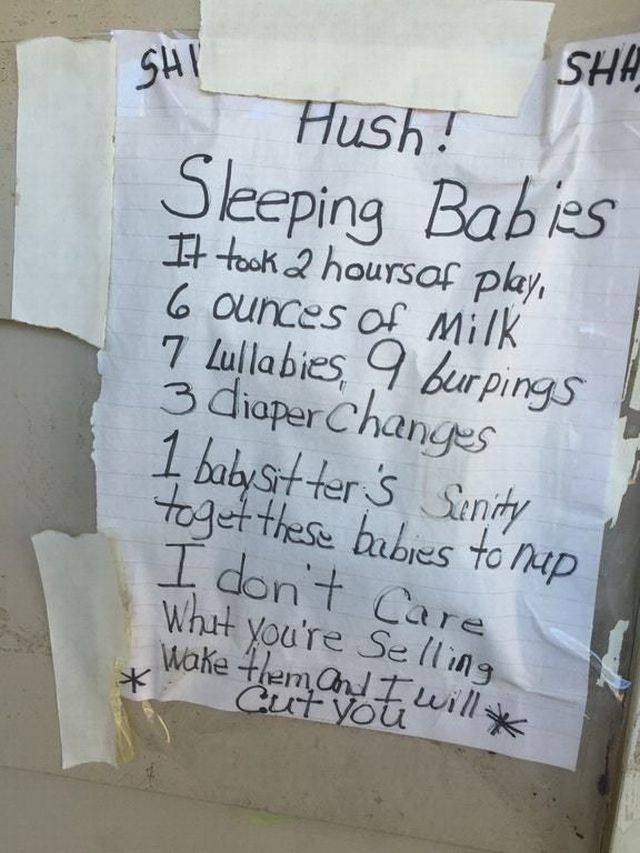 SHH SHH,
Hush!
Sleeping Babies
It took 2 hours of play,
6 ounces of Milk
7 Lullabies, 9 burpings
3 diaper Changes
1 babysitter's Sanity
to get these babies to nap
I don't Care
What you're Selling
* Wake them and I will *
Cut you